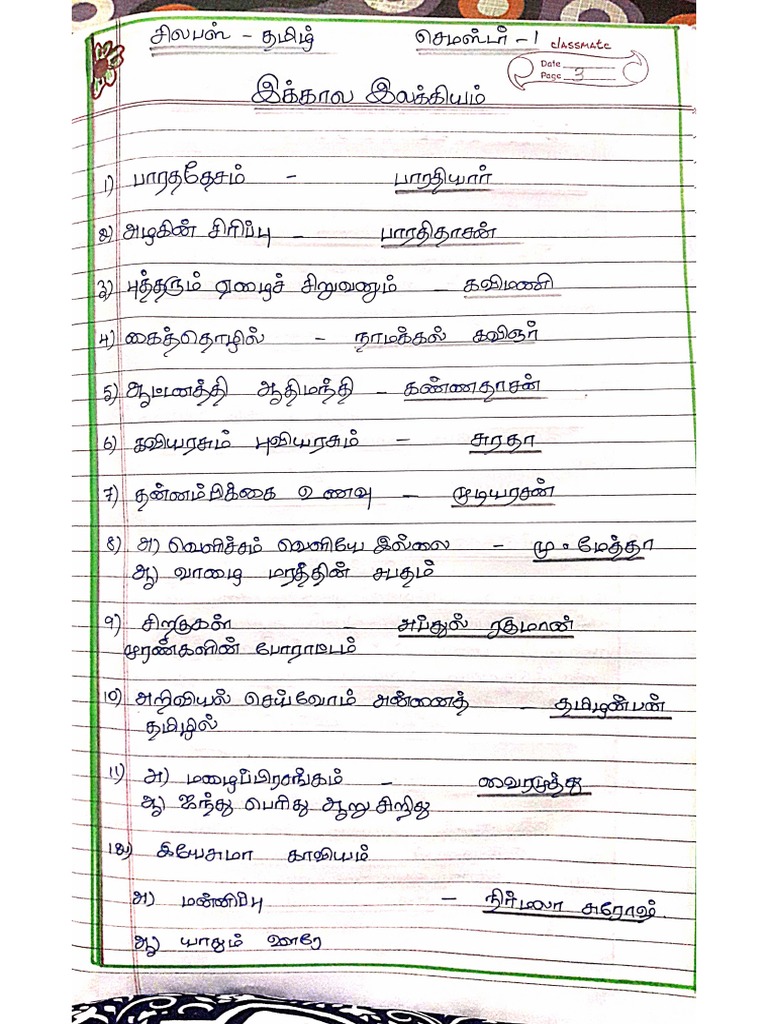 சிலபஸ் - தமிழ் செமஸ்டர் - 1
classmate
Date
Page 3
இக்கால இலக்கியம்
1) பாரததேசம் - பாரதியார்
2) அழகின் சிரிப்பு - பாரதிதாசன்
3) புத்தரும் ஏழைச் சிறுவனும் - கவிமணி
4) கைத்தொழில் - நாமக்கல் கவிஞர்
5) ஆட்டனத்தி ஆதிமந்தி - கண்ணதாசன்
6) கவியரசும் புவியரசும் - சுரதா
7) தன்னம்பிக்கை உணவு - முடியரசன்
8) அ) வெளிச்சம் வெளியே இல்லை - மு. மேத்தா
ஆ) வாழை மரத்தின் சபதம்
9) சிறகுகள் - அப்துல் ரகுமான்
முரண்களின் போராட்டம்
10) அறிவியல் செய்வோம் அன்னைத் - தமிழன்பன்
தமிழில்
11) அ) மழைப்பிரசங்கம் - வைரமுத்து
ஆ) ஐந்து பெரிது ஆறு சிறிது
12) இயேசுமா காவியம்
அ) மன்னிப்பு - நிர்மலா சுரேஷ்.
ஆ) யாதும் ஊரே